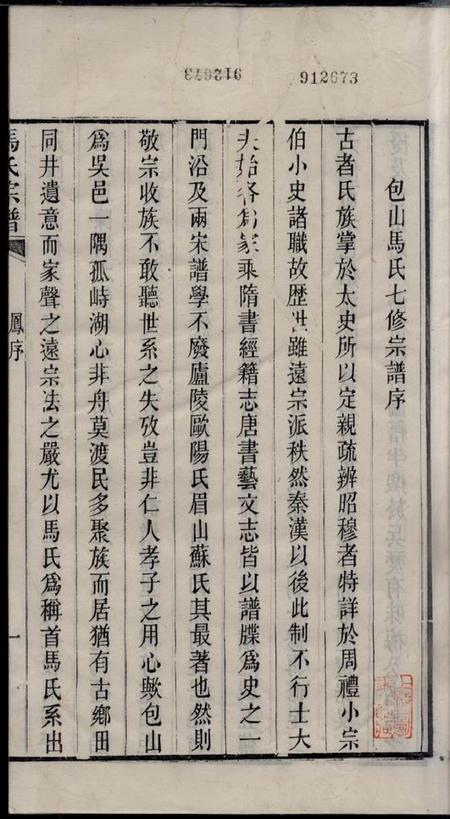 912673
912673
包山馬氏七修宗譜序
古者氏族掌於太史所以定親疏辨昭穆者特詳於周禮小宗
伯小史諸職故歷世雖遠宗派秩然秦漢以後此制不行士大
夫始各爲家乘隋書經籍志唐書藝文志皆以譜牒爲史之一
門沿及兩宋譜學不廢廬陵歐陽氏眉山蘇氏其最著也然則
敬宗收族不敢聽世系之失攷豈非仁人孝子之用心歟包山
爲吳邑一隅孤峙湖心非舟莫渡民多聚族而居猶有古鄉田
同井遺意而家聲之遠宗法之嚴尤以馬氏爲稱首馬氏系出
馬氏宗譜
鳳序
一